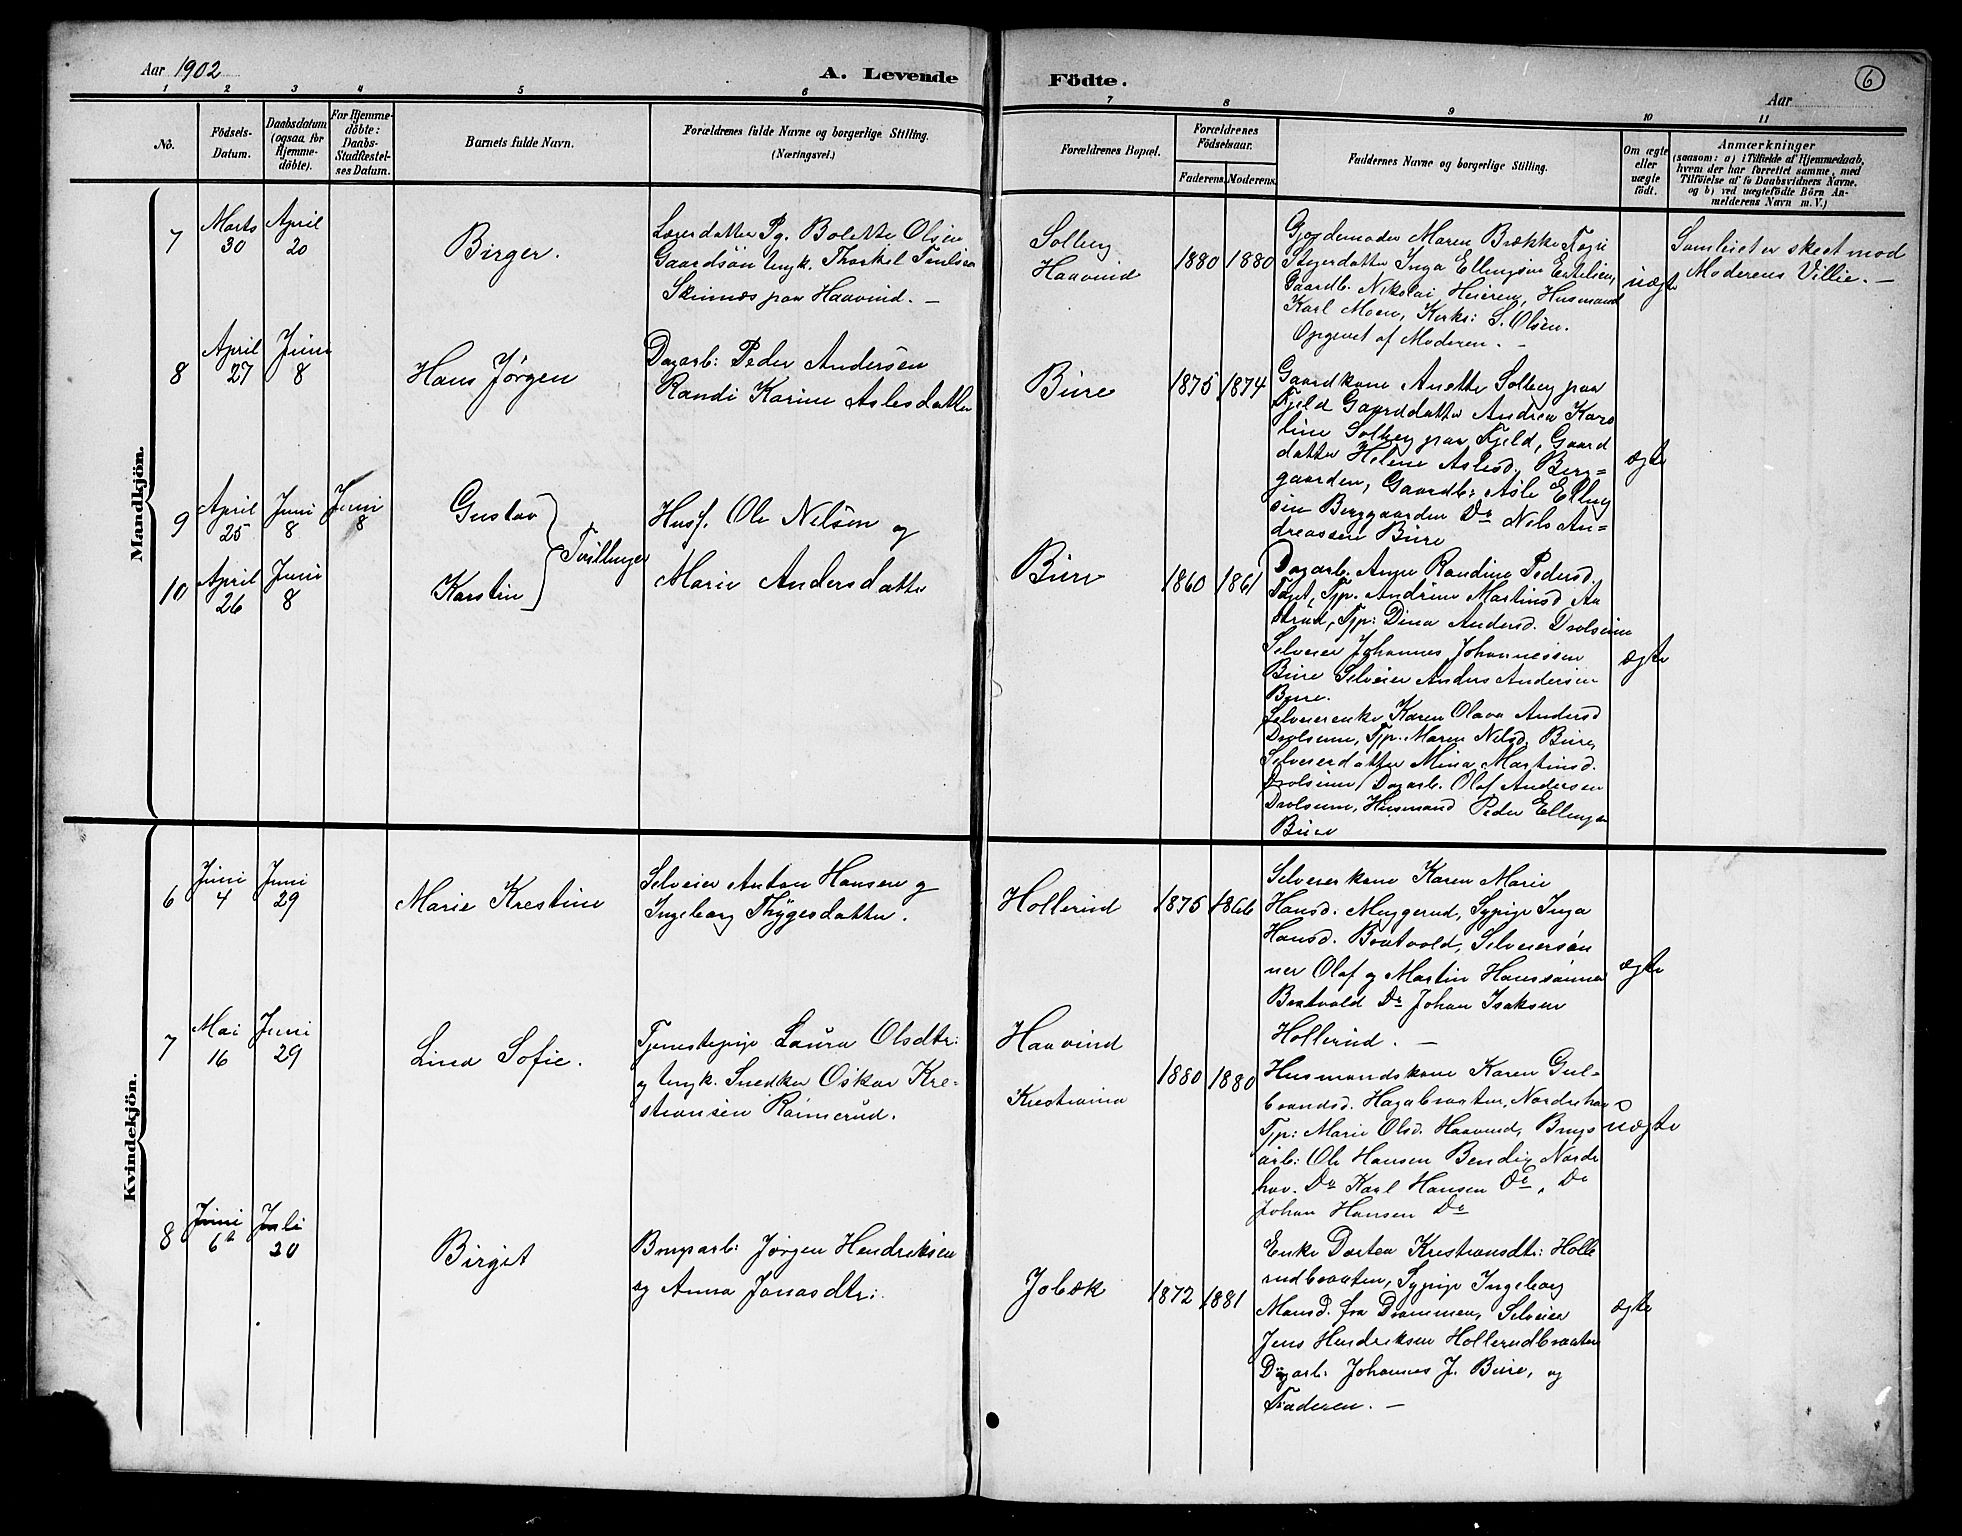 Aar 1902
A. Levende
Födte.
6
Aar
1 2 3 4 5 6 7 8 9 10 11
No.
Födsels-
Datum.
Daabsdatum
(ogsaa for
Hjemme-
döbte).
For Hjemme-
döbte:
Daabs-
Stadfæstel-
ses Datum.
Barnets fulde Navn.
Forældrenes fulde Navne og borgerlige Stilling.
(Næringsvei.)
Forældrenes Bopæl.
Forældrenes
Födselsaar.
Faderens.
Moderens.
Faddernes Navne og borgerlige Stilling.
Om ægte
eller
uægte
födt.
Anmærkninger
(saasom: a) i Tilfælde af Hjemmedaab,
hvem der har forrettet samme, med
Tilföielse af to Daabsvidners Navne.
og b) ved uægtefödte Börn An-
melderens Navn m. V.)
Mandkjön.
7
Marts
30
April
20
Birger.
Pg. Bolette Olsen
Gaardsøn Ungk. Thorkel
paa Haavind. —
Solberg
Haavind
1880
1880
Gjordemoder Maren Brække
Inga Ellingsen
Gaardb. Nikolai Heieren, Husmand
Karl Moen, Kirks: S. Olsen.
Opgivet af Moderen. -
uægte
Samleiet er skeet mod
Moderens Villie. —
8
April
27
Juni
8
Hans Jørgen
Dagarb: Peder Andersen
Randi Karine Aslesdatter
Bure
1875
1874
Gaardkone Anette Solberg paa
Fjeld Gaarddatter Andrea Karo
line Solberg paa Fjeld, Gaard
datter Helene Aslesd. Berg=
gaarden, Gaardb: Asle Elling
sen Berggaarden Do Nels An=
dreassen Bure
ægte
9
April
25
Juni
8
Juni
8
Gustav
Husf. Ole Nelsen og
Tvillinger
10
April
26
Juni
8
Karstin
Marie Andersdatter
Bure
1860
1861
Dagarb. Anne Randine Pedersd.
Tjp. Andrine Martinsd Aa
strud, Tjp: Dina Andersd. Drolsum
Selveier Johannes Johannessen
Bure Selveier Anders Andersen
Bure.
Selveierenke Karen Olava Andersd
Drolsum, Tjp. Maren Nelsd. Bure,
Selveierdatter Mina Martinsd.
Drolsum, Dagarb. Olaf Andersen
Drolsum, Husmand Peder Ellingsen
Bure
ægte
Kvindekjön.
6
Juni
4
Juni
29
Marie Krestine
Selveier Anton Hansen og
Ingeborg Thygesdatter.
Hollerud
1875
1866
Selveierkone Karen Marie
Hansd. Muggerud, Sypige Inga
Hansd. Bratvold, Selveiersøn
ner Olaf og Martin Hanssønner
Bratvold Do Johan Isaksen
Hollerud. —
ægte
7
Mai
16
Juni
29
Lina Sofie.
Tjenestepige Laura Olsdtr:
og Ungk. Snedker Oskar Kre-
stiansen Ramerud.
Haavind
Krestiania
1880
1880
Husmandskone Karen Gul-
brandsd. Hagabraaten, Norderhov
Tjp: Marie Olsd. Haavind, Brugs
arb: Ole Hansen Bendig Norder
hov. Do Karl Hansen Do, Do
Johan Hansen Do
uægte
8
Juni
6te
Juli
20
Birgit
Brugsarb: Jørgen Hendriksen
og Anna Jonasdtr:
Jobæk
1872
1881
Enke Dortea Krestiansdtr: Holle
rudbraaten, Sypige Ingeborg
Mansd. fra Drammen, Selveier
Jens Hendriksen Hollerudbraaten
Dagarb. Johannes J. Bure, og
Faderen. —
ægte